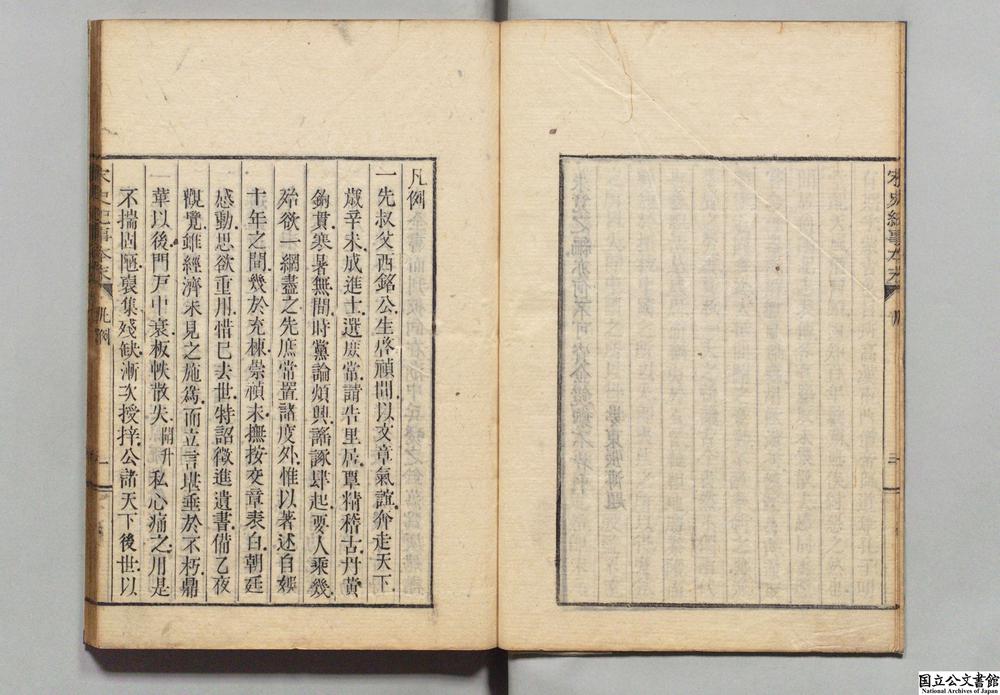 宋史紀事本末
凡例
一先叔父西銘公生啓禎間以文章氣誼奔走天下
歲辛未成進士選庶常請告里居覃精稽古丹黃
鉤貫寒暑無間時黨論頻興謠諑肆起要人乘幾
殆欲一網盡之先庶常置諸度外惟以著述自娛
十年之間幾於充棟崇禎末撫按交章表白朝廷
感動思欲重用惜已去世特詔徵進遺書備乙夜
觀覽雖經濟未見之施爲而立言堪垂於不朽鼎
華以後門戸中衰板帙散失開升私心痛之用是
不揣固陋裒集殘缺漸次授梓公諸天下後世以
宋史紀事本末
凡例
一
国立公文書館
National Archives of Japan